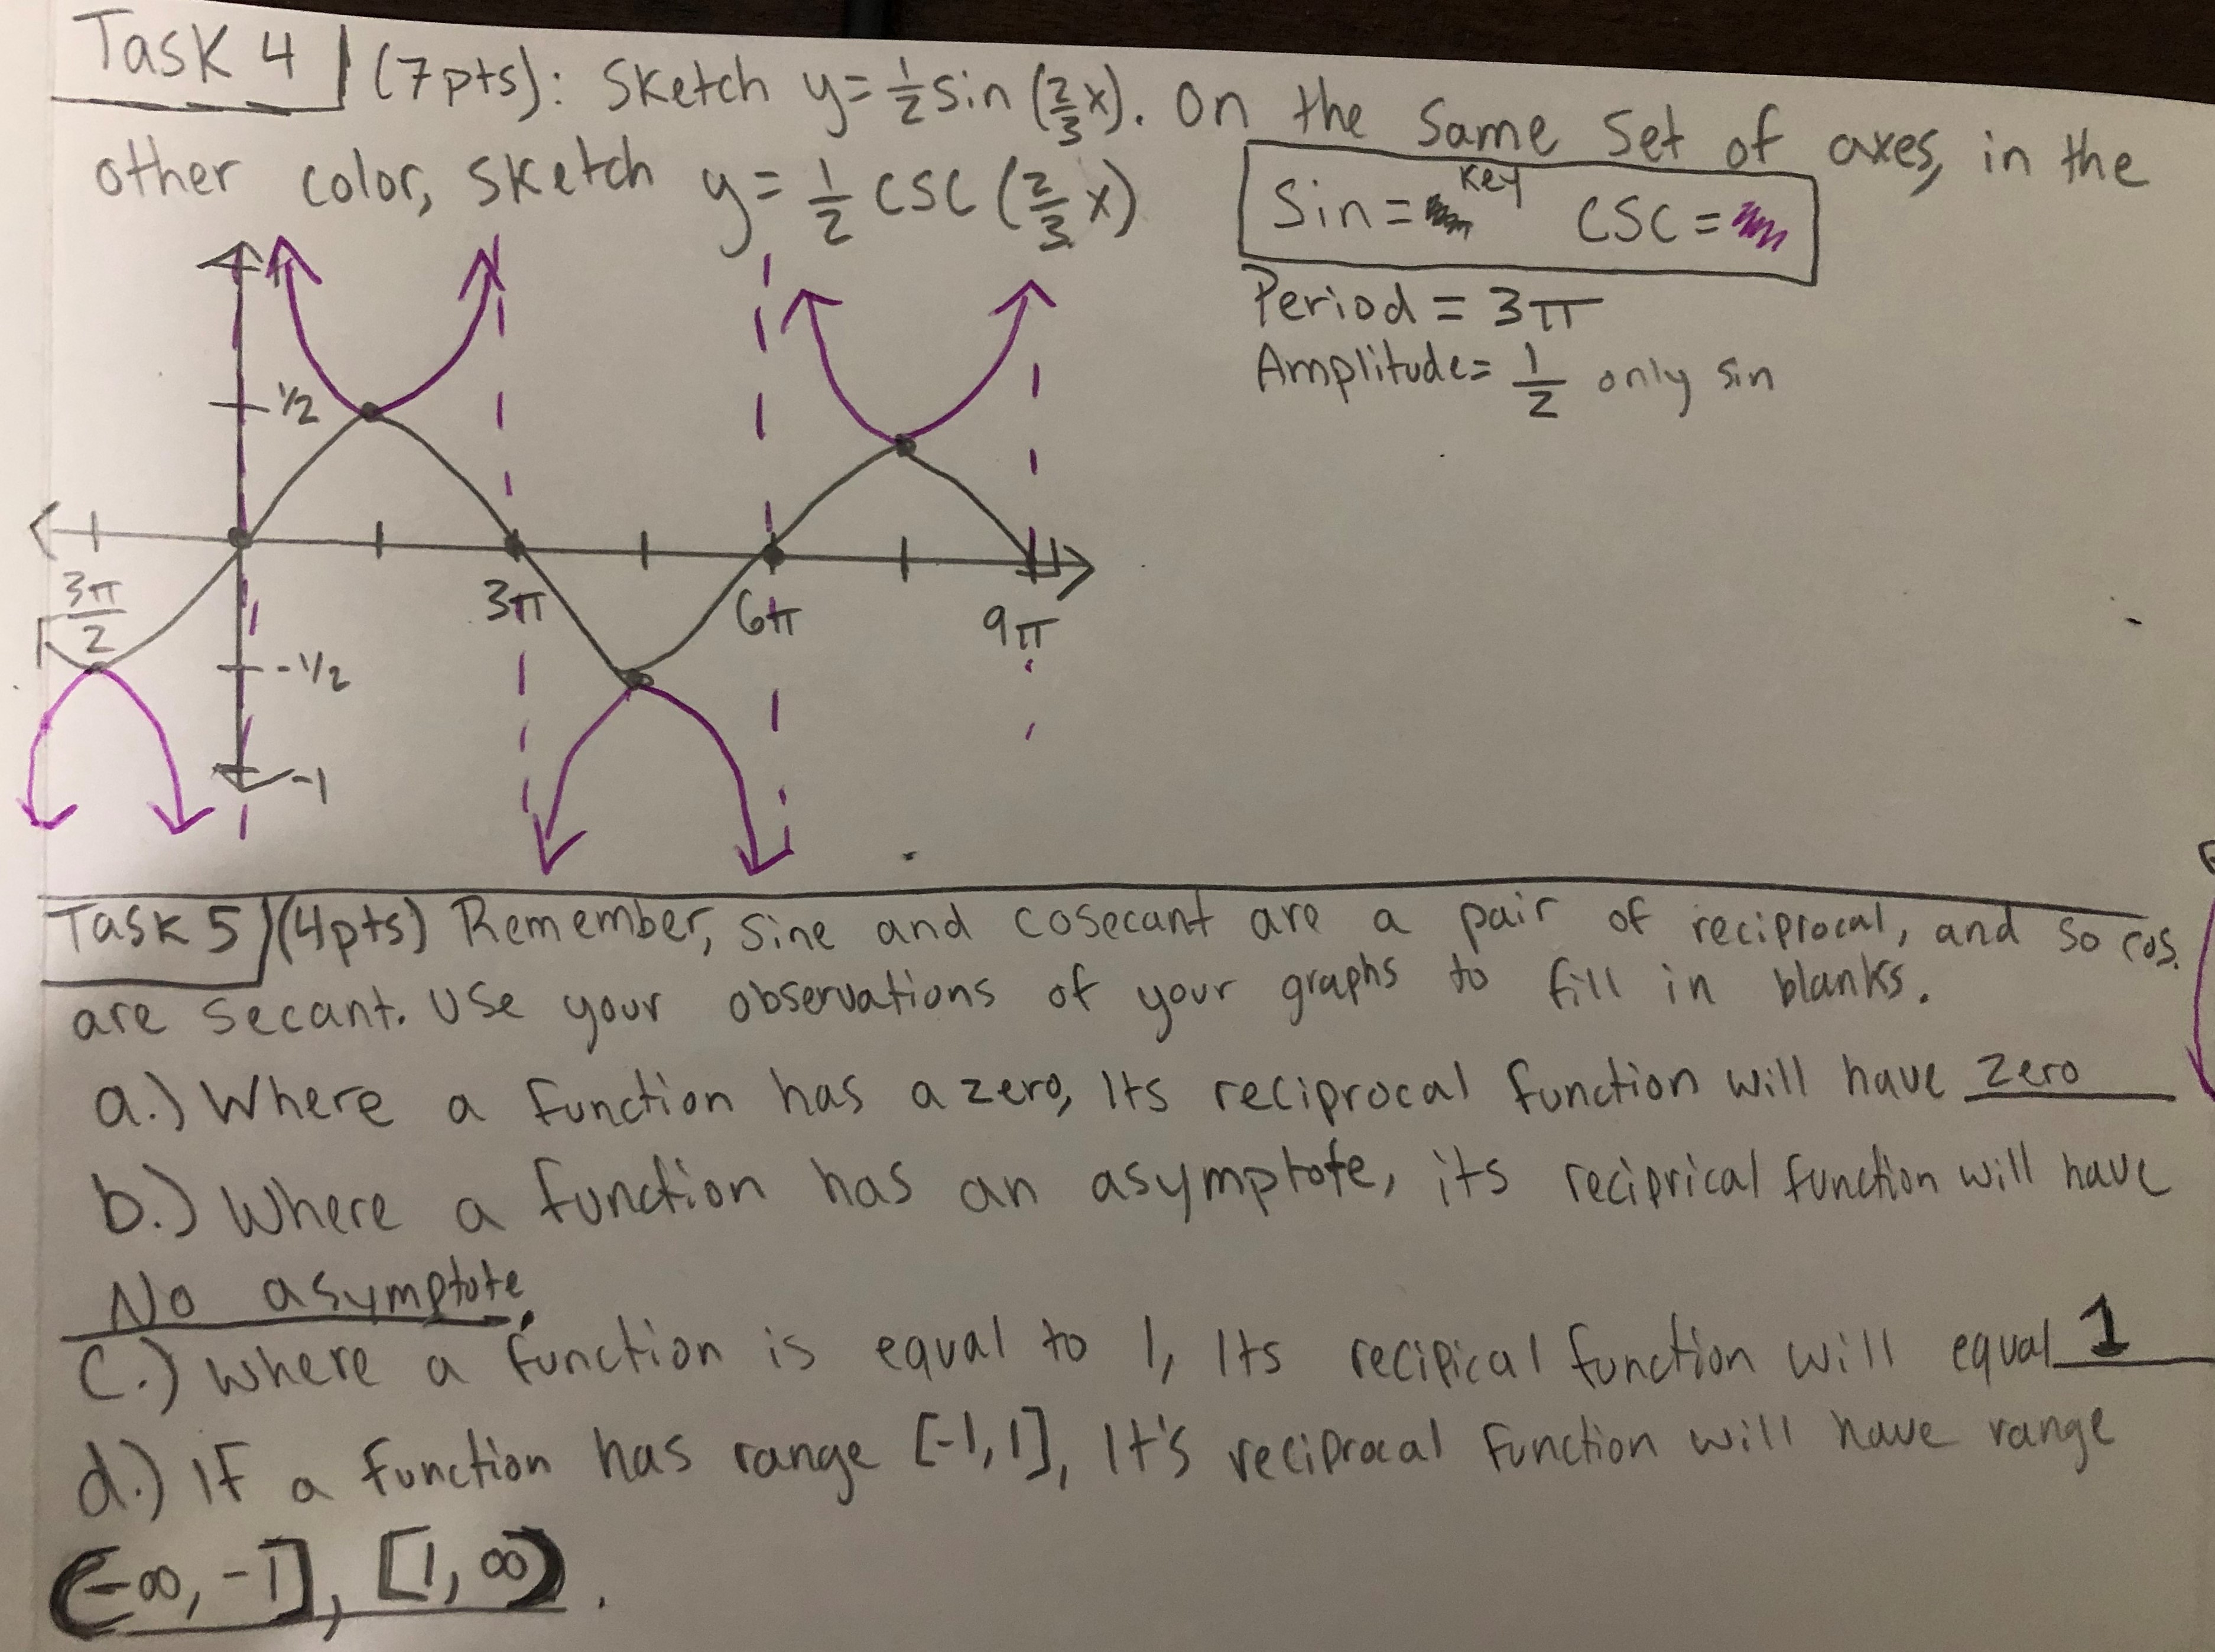 Task 4 (7pts): Sketch y=½sin(⅔x). On the same set of axes, in the
other color, sketch y=½csc(⅔x)
Key
Sin= CSC=
Period = 3π
Amplitude= ½ only sin
½
3π/2
3π
6π
9π
-½
-1
Task 5 (4pts) Remember, sine and cosecant are a pair of reciprocal, and so cos.
are secant. Use your observations of your graphs to fill in blanks.
a.) Where a function has a zero, Its reciprocal function will have zero
b.) Where a function has an asymptote, its reciprical function will have
No asymptote.
C.) where a function is equal to 1, Its recipical function will equal 1
d.) IF a function has range [-1,1], It's reciprocal function will have range
(-∞, -1], [1, ∞).